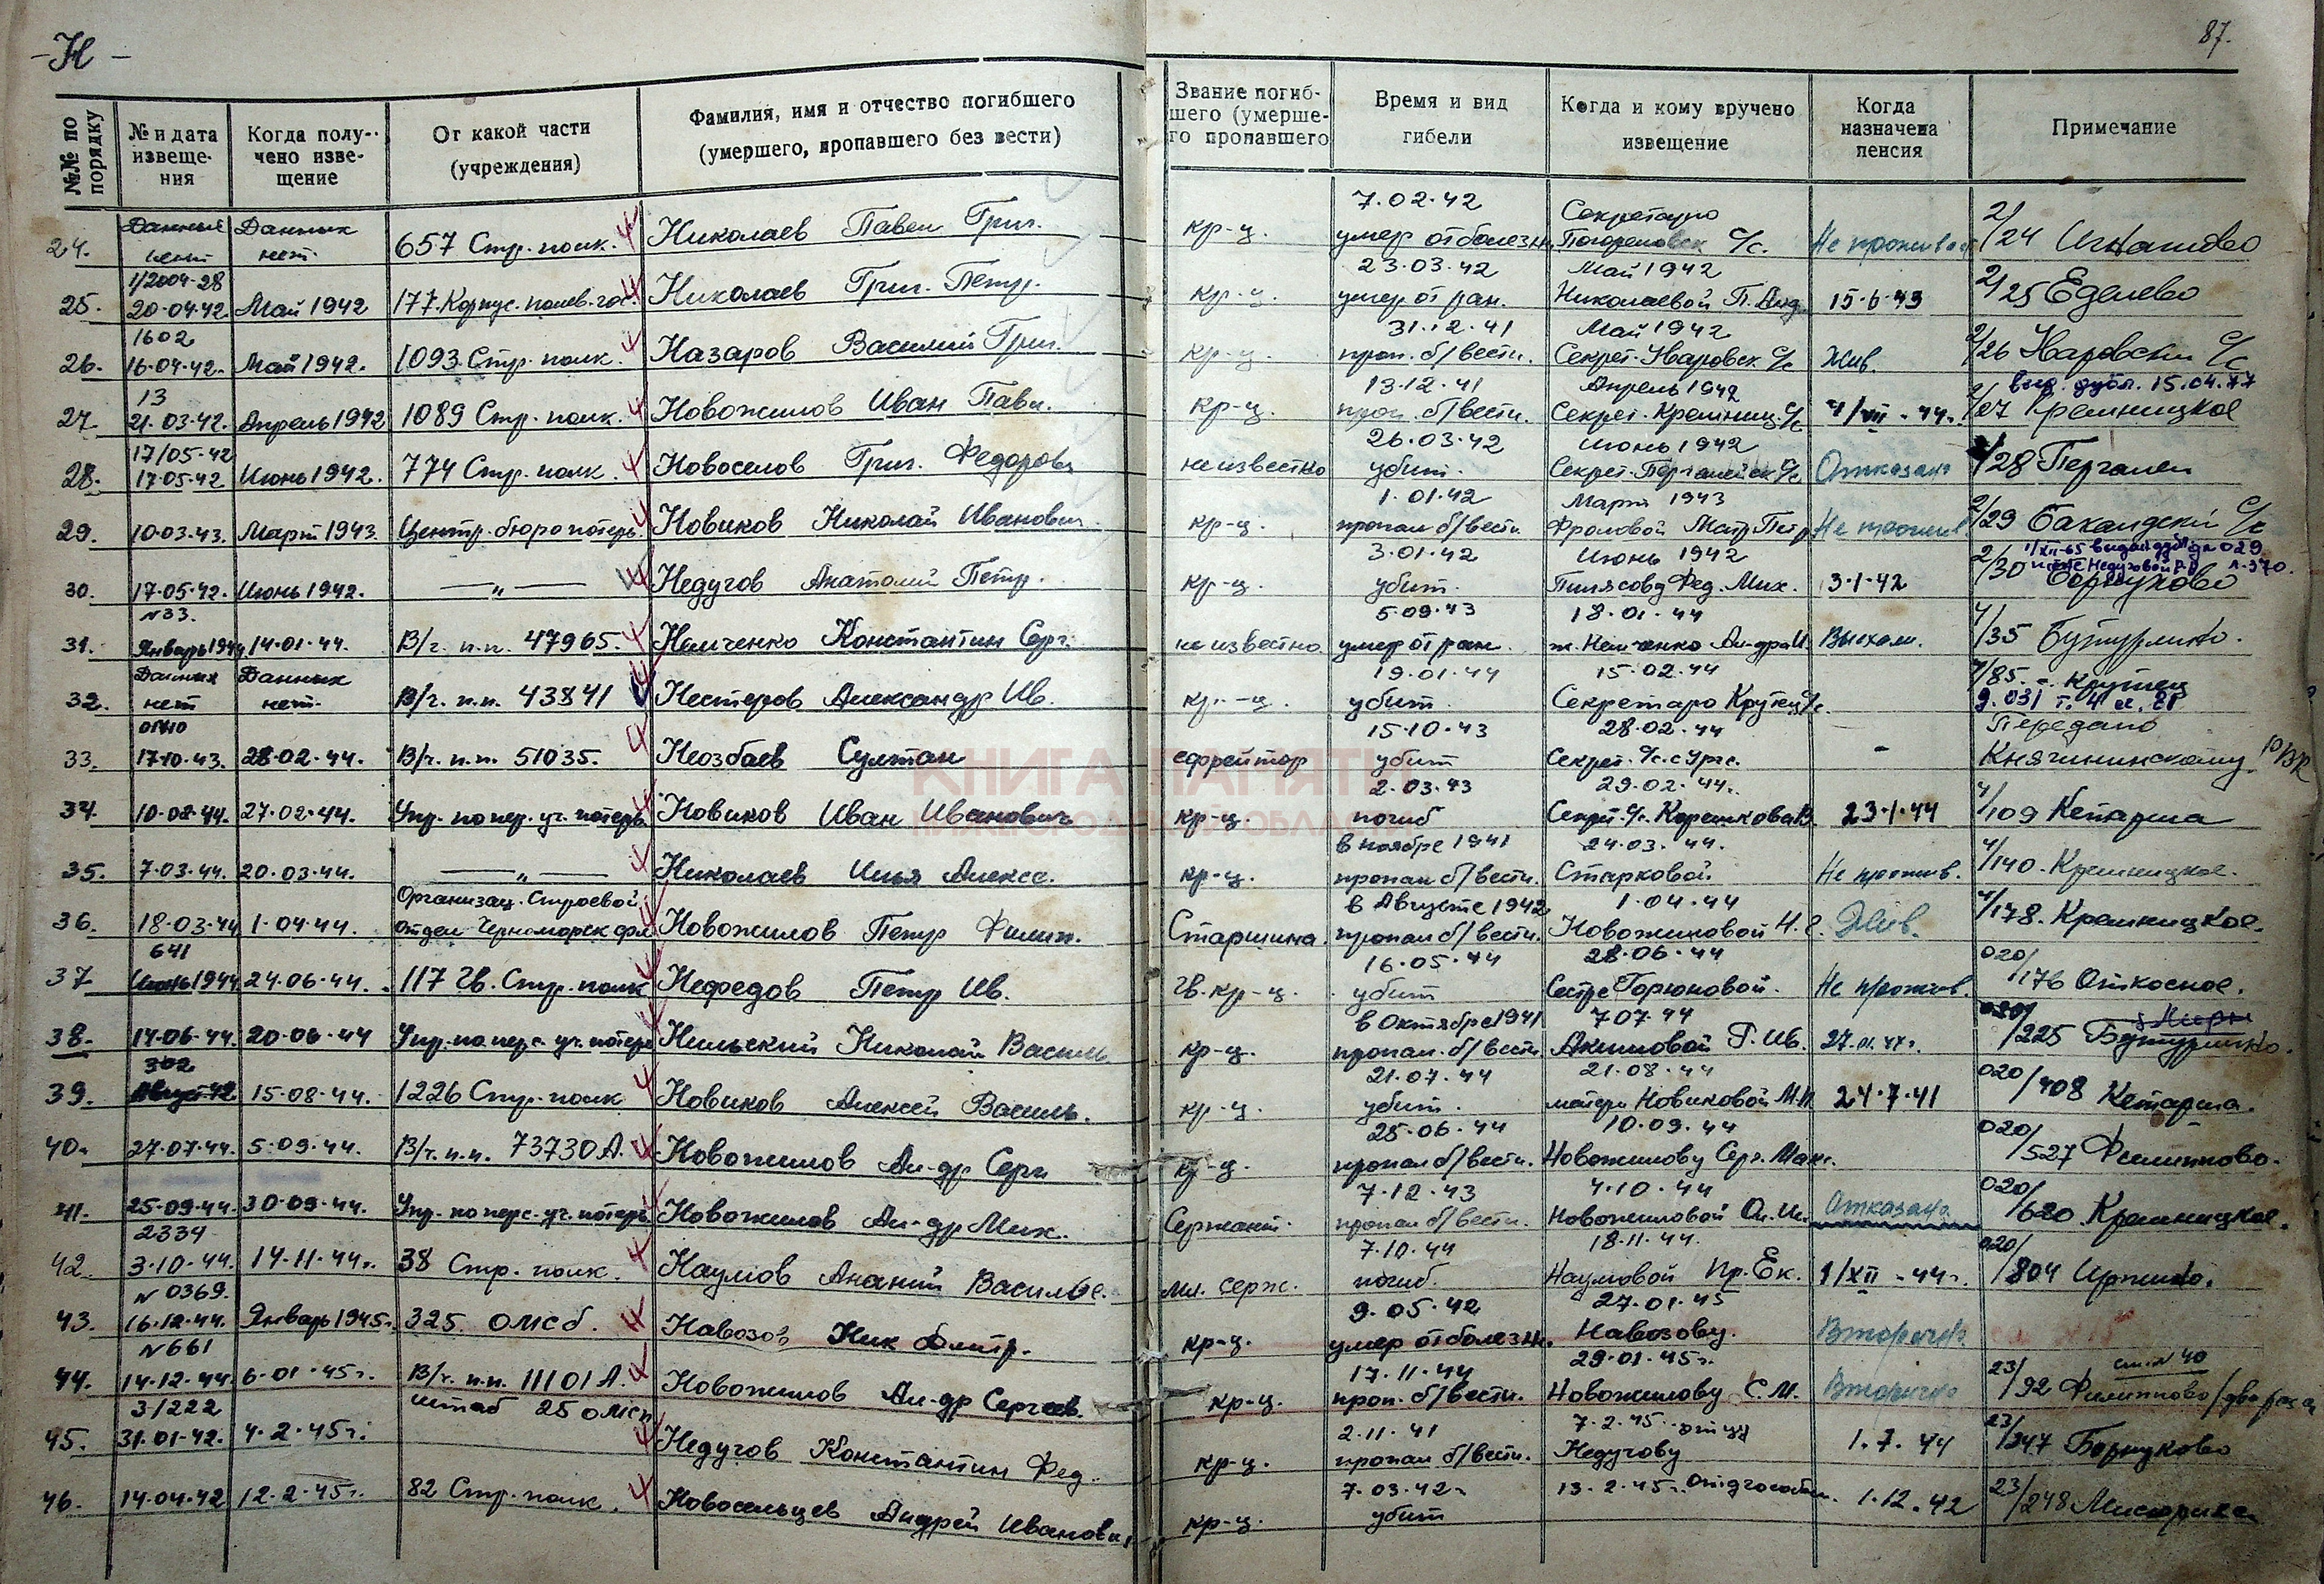 -Н-
87.
№№ по порядку
№ и дата извеще-ния
Когда полу-чено изве-щение
От какой части (учреждения)
Фамилия, имя и отчество погибшего (умершего, пропавшего без вести)
Звание погиб-шего (умерше-го пропавшего
Время и вид гибели
Когда и кому вручено извещение
Когда назначена пенсия
Примечание
Данных Данных 7.02.42 Секретарю 2/
24. нет нет. 657 Стр. полк. Николаев Павел Григ. кр-ц. умер от болезн. С/с. Не прожив 24 Игнатово
1/2004-28 23.03.42 Май 1942 2/
25. 20.04.42 Май 1942 177. Корпус. полев. гос. Николаев Григ. Петр. кр-ц. умер от ран. Николаевой П. Анд. 15.6.43 25 Еделево
1602 31.12.41 Май 1942 2/
26. 16.04.42. Май 1942. 1093. Стр. полк. Назаров Василий Григ. кр-ц. проп. б/вести. Секрет. Уваровск. С/с Жив. 26 Уваровский С/с
13 13.12.41 Апрель 1942 выд. дубл. 15.04.77
27. 21.03.42. Апрель 1942 1089 Стр. полк. Новожилов Иван Павл. кр-ц. проп. б/вести. Секрет. Кремниц. С/с 4/VII-44г. 2/27 Кремницкое
17/05-42 26.03.42 Июнь 1942
28. 17.05.42 Июнь 1942. 774 Стр. полк. Новоселов Григ. Федоров. неизвестно убит. Секрет. Пергалейск С/с Отказано /28 Пергалеи
1.01.42 Март 1943 2/
29. 10.03.43. Март 1943. Центр. бюро потерь. Новиков Николай Иванович кр-ц. пропал б/вести. Фроловой Матр Петр Не прожив. 29 Бакалдский С/с
3.01.42 Июнь 1942 2/ 1/XII-65 выдан 029
30. 17.05.42. Июнь 1942. —„— Недугов Анатолий Петр. кр-ц. убит. Пилясову Фед. Мих. 3.1.42 30 Борнуково Недуговой л.370.
№33. 5.09.43 18.01.44 4/
31. Январь 1944 14.01.44. В/ч. п.п. 47965. Немченко Константин Серг. неизвестно умер от ран. ж. Немченко Ал-дра И. Выехал. 35 Бутурлино.
Данных Данных 19.01.44 15.02.44 4/85. с. Крутец
32. нет нет. В/ч. п.п. 43841 Нестеров Александр Ив. кр.-ц. убит. Секретарю Крутец С/с. 9.031 т.
0140 15.10.43 28.02.44 Передано
33. 17.10.43. 28.02.44. В/ч. п.п. 51035. Неозбаев Султан ефрейтор убит Секрет. С/с с Ург. - Княгининскому РВК
2.03.43 29.02.44. 4/
34. 10.02.44. 27.02.44. Упр. по пер. уч. потерь Новиков Иван Иванович кр-ц. погиб Секрет. С/с. Корешкова В. 23.1.44 109 Кетарша
в ноябре 1941 24.03.44. 4/
35. 7.03.44. 20.03.44. —„— Николаев Илья Алексе. кр-ц. пропал б/вести. Старковой. Не прожив. 140. Кремницкое.
Организац. Строевой. в Августе 1942 1.04.44 4/
36. 18.03.44 1.04.44. отдел Черноморск фл Новожилов Петр Филип. Старшина. пропал б/вести. Новожиловой Н. Е. Жив. 178. Кремницкое.
641 16.05.44 28.06.44 020/
37 Июнь 1944 24.06.44. 117 Гв. Стр. полк Нефедов Петр Ив. Гв. кр-ц. убит Сестре Горюновой. Не прожив. 176 Откосное.
в Октябре 1941 7 07.44 020/
38. 14.06.44. 20.06.44 Упр. по перс. уч. потерь Нильский Николай Василь кр-ц. пропал. б/вести Акимовой Г. Ив. 225 Бутурлино.
302 21.07.44 21.08.44 020/
39. Август 42 15.08.44. 1226 Стр. полк Новиков Алексей Василь. кр-ц. убит. матери Новиковой М.И 24.7.41 408 Кетарша.
25.06.44 10.09.44 020/
40. 27.07.44. 5.09.44. В/ч. п.п. 73730А. Новожилов Ал-др Серг кр-ц. пропал б/вести. Новожилову Серг. Макс. 527 Филиппово.
7.12.43 4.10.44 020/
41. 25.09.44. 30.09.44. Упр. по перс. уч. потерь Новожилов Ал-др Мих. Сержант. пропал б/вести. Новожиловой Ол. Ил. Отказано 620 Кремницкое.
2334 7.10.44 18.11.44. 020/
42. 3.10.44. 14.11.44г. 38 Стр. полк. Наумов Ананий Василье. мл. серж. погиб. Наумовой Пр. Ек. 1/XII-44г. 804 Ирпино.
№ 0369. 9.05.42 27.01.45
43. 16.12.44. Январь 1945г. 325. омсб. Навозов Ник Дмитр. кр-ц. умер от болезн. Навозову. Вторично
№661 17.11.44 29.01.45г. 23/ см. № 40
44. 14.12.44 6.01.45г. В/ч. п.п. 11101А. Новожилов Ал-др Сергеев. кр-ц. проп. б/вести. Новожилову С.М. Вторично 92 Филиппово
3/222 штаб 25 омсп 2.11.41 7.2.45 отцу 23/
45. 31.01.42. 4.2.45г. Недугов Константин Фед. кр-ц. пропал б/вести. Недугову 1.7.44 247 Борнуково
7.03.42г 13.2.45г. 23/
46. 14.04.42 12.2.45г. 82 Стр. полк. Новосельцев Андрей Иванови. кр-ц. убит 1.12.42 248
КНИГА ПАМЯТИ
НИЖЕГОРОДСКОЙ ОБЛАСТИ